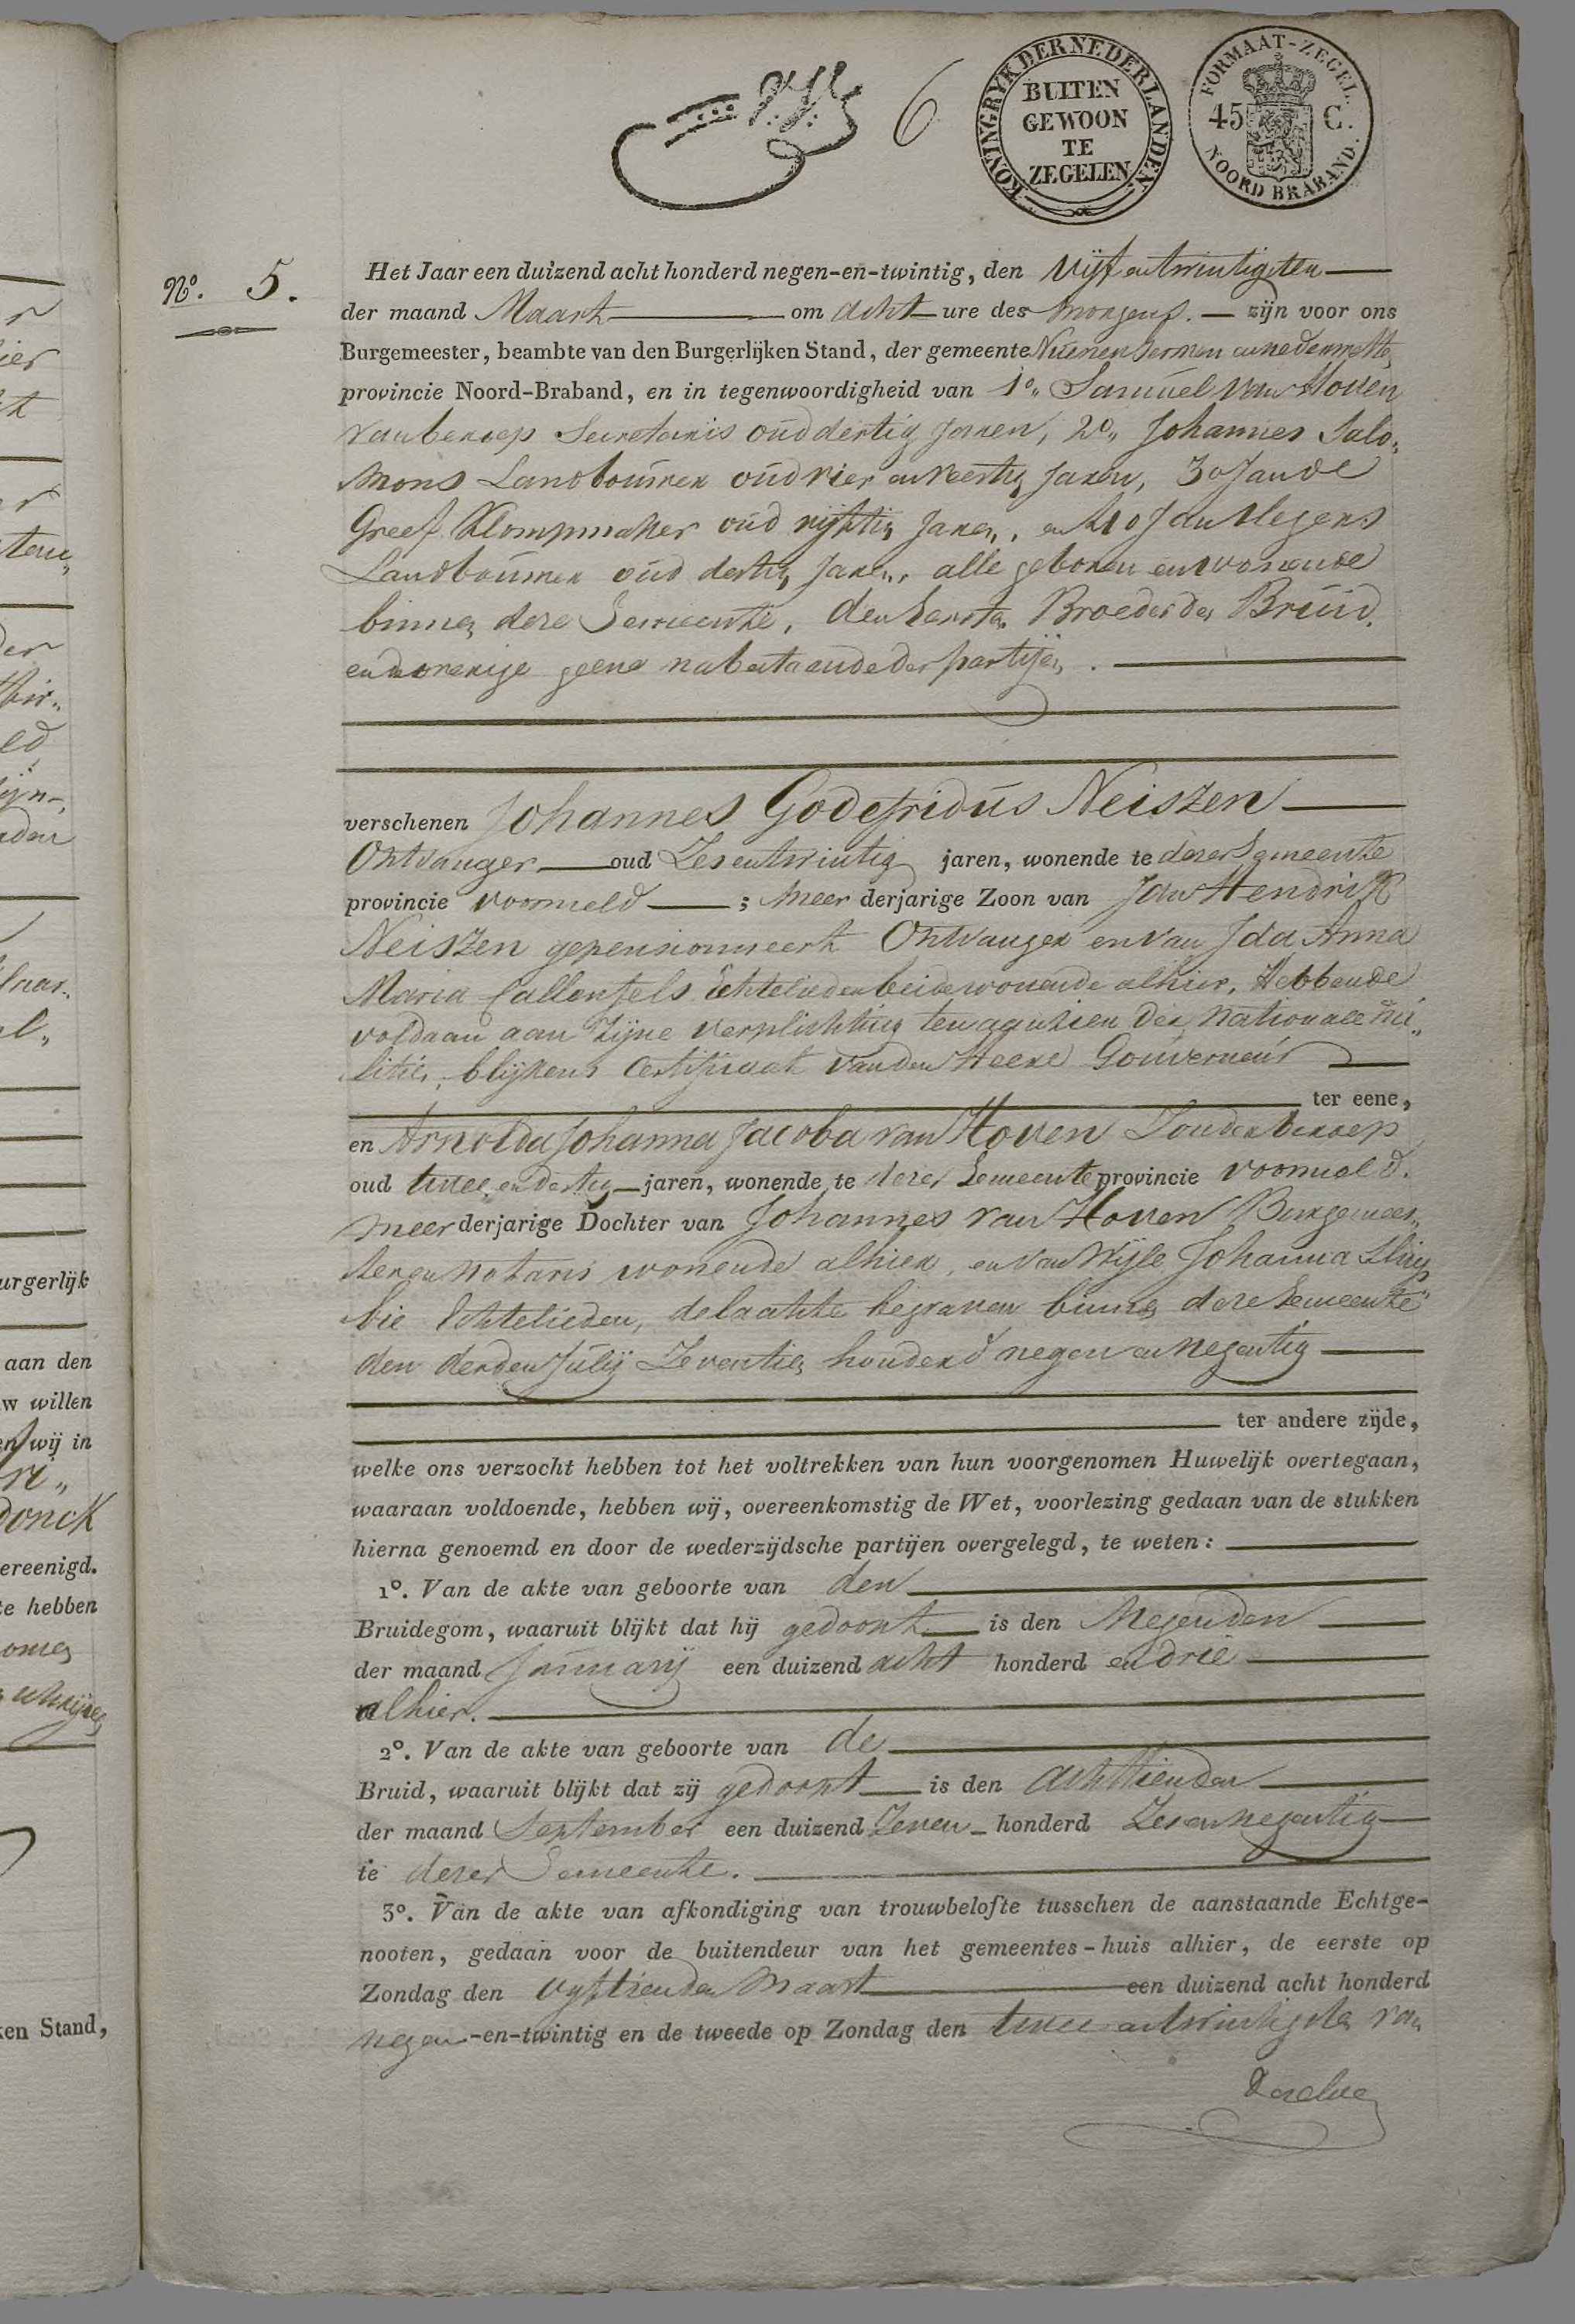 6
KONINGRYK DER NEDERLANDEN.
BUITEN
GEWOON
TE
ZEGELEN
FORMAAT-ZEGEL.
45 C.
NOORD BRABAND.
Nº. 5.
Het Jaar een duizend acht honderd negen-en-twintig, den Vijfentwintigsten
der maand Maart om acht ure des morgens. zijn voor ons
Burgemeester, beambte van den Burgerlijken Stand, der gemeente Nuenen Gerwen en Nederwetten
provincie Noord-Braband, en in tegenwoordigheid van 1º„ Samuel van Hoven
van beroep Secretaris oud dertig jaren, 2º„ Johannes Salo„
mons Landbouwer oud vier en veertig jaren, 3º Jan de
Greef Klompmaker oud vijftig jaren, en 4º Jan Slegers
Landbouwer oud dertig jaren, alle geboren en wonende
binnen deze Gemeente, den eersten Broeder der Bruid,
en de overige geene nabestaande der partijen.
verschenen Johannes Godefridus Neiszen
Ontvanger oud Zesentwintig jaren, wonende te dezer Gemeente
provincie voormeld ; meer derjarige Zoon van Jan Hendrik
Neiszen gepensionneert Ontvanger en van Ida Anna
Maria Callenfels Echtelieden beide wonende alhier, Hebbende
voldaan aan zijne verplichting ten aanzien der Nationale Mi„
litie, blijkens Certificaat van den Heere Gouverneur
ter eene,
en Arnolda Johanna Jacoba van Hoven Zonder beroep
oud twee en dertig jaren, wonende te dezer Gemeente provincie voormeld.
meer derjarige Dochter van Johannes van Hoven Burgemees„
ter en Notaris wonende alhier, en van Wijle Johanna
bie Echtelieden, de laatste begraven binnen deze Gemeente
den derden Julij Zeventien honderd negen en negentig
ter andere zijde,
welke ons verzocht hebben tot het voltrekken van hun voorgenomen Huwelijk overtegaan,
waaraan voldoende, hebben wij, overeenkomstig de Wet, voorlezing gedaan van de stukken
hierna genoemd en door de wederzijdsche partijen overgelegd, te weten:
1º. Van de akte van geboorte van den
Bruidegom, waaruit blijkt dat hij gedoopt is den Negenden
der maand Januarij een duizend acht honderd en drie
alhier.
2º. Van de akte van geboorte van de
Bruid, waaruit blijkt dat zij gedoopt is den achttienden
der maand September een duizend Zeven honderd Zes en negentig
te dezer Gemeente.
3º. Van de akte van afkondiging van trouwbelofte tusschen de aanstaande Echtge-
nooten, gedaan voor de buitendeur van het gemeentes-huis alhier, de eerste op
Zondag den vyftienden Maart een duizend acht honderd
negen-en-twintig en de tweede op Zondag den twee en twintigsten van
Dezelve
urgerlijk
aan den
w willen
en wij in
donck
ereenigd.
te hebben
ken Stand,